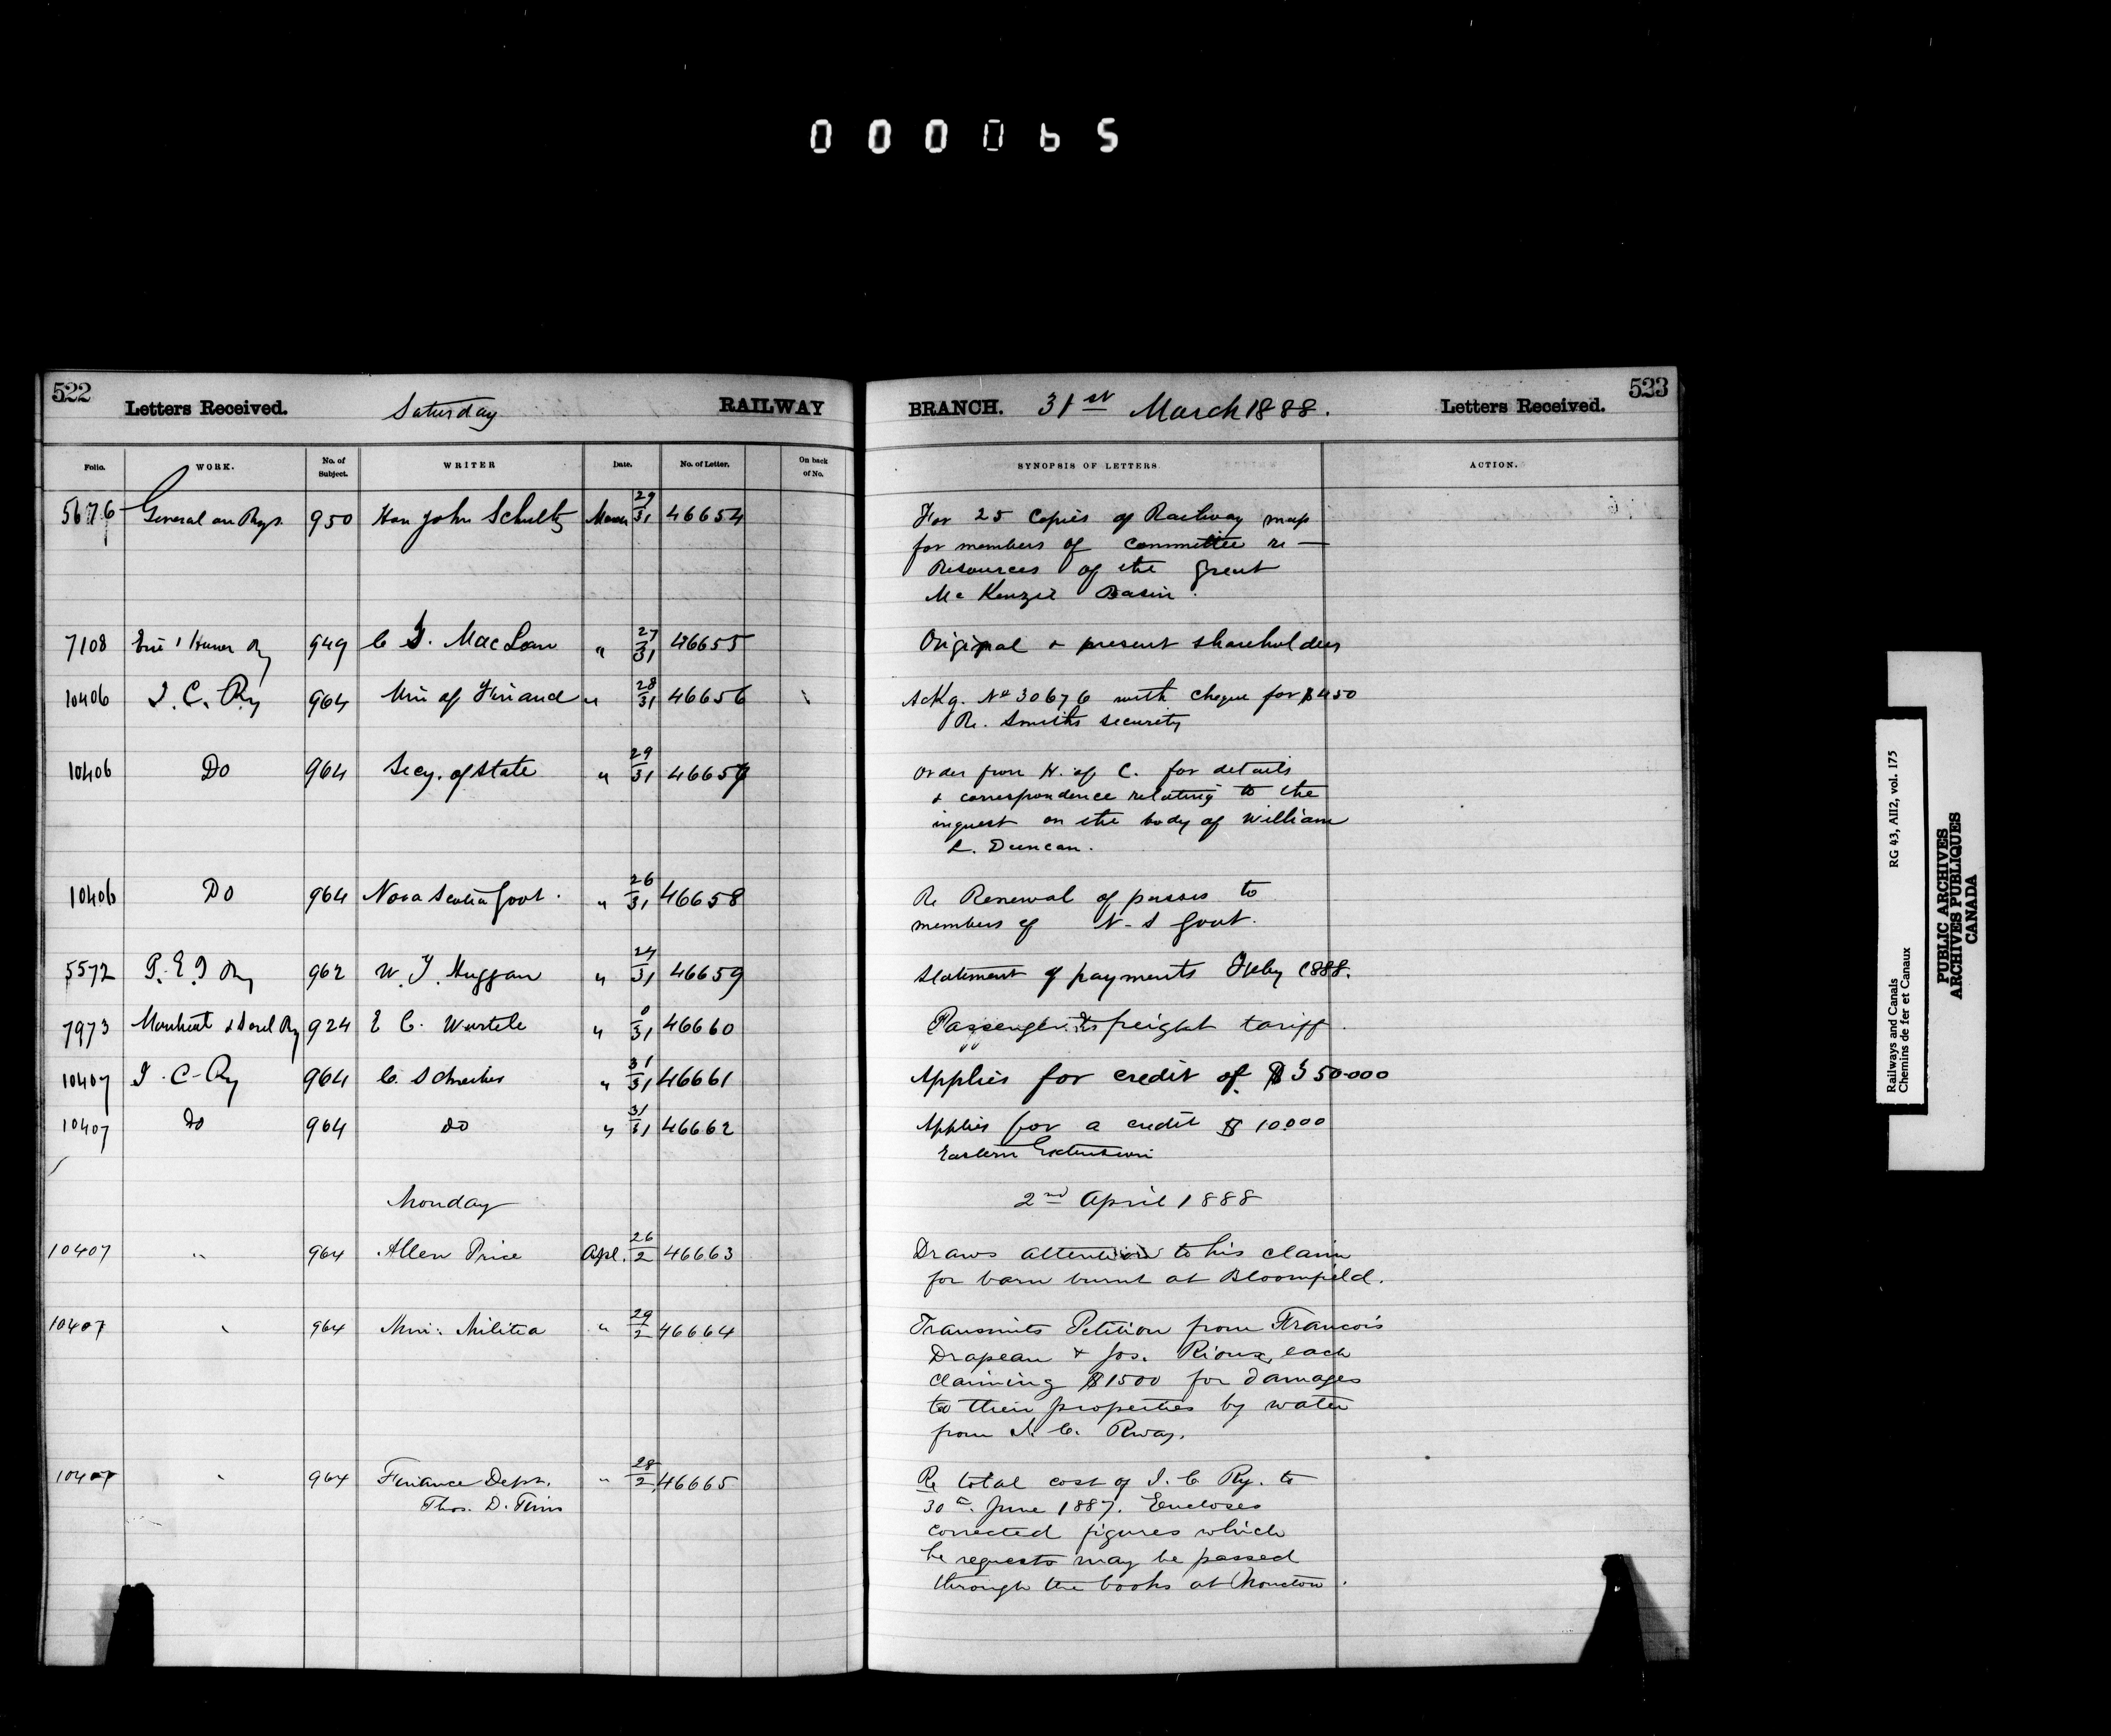 000065
522 Letters Received. Saturday RAILWAY BRANCH. 31st March 1888. Letters Received. 523
Folio. WORK. No. of Subject. WRITER Date. No. of Letter. On back of No. SYNOPSIS OF LETTERS. ACTION.
5676 General on Rys. 950 Hon John Schultz March 29/31 46654 For 25 Copies of Railway map
for members of Committee re —
Resources of the Great
McKenzie Basin.
7108 Erie & Huron Ry 949 C J. MacLean " 27/31 46655 Original & present shareholders
10406 I. C. Ry 964 Min of Finance " 28/31 46656 \ Ackg. No 30676 with cheque for $450
Re. Smiths security
10406 Do 964 Secy. of State " 29/31 46657 Order from H. of C. for details
& correspondence relating to the
inquest on the body of William
L. Duncan.
10406 Do 964 Nova Scotia Govt. " 26/31 46658 Re Renewal of passes to
members of N-S Govt.
5572 P. E. I Ry 962 W. T. Huggan " 24/31 46659 Statement of payments Feby 1888.
7973 Montreal & Sorel Ry 924 E C. Wurtele " 0/31 46660 Passenger & freight tariff.
10407 I. C. Ry 964 C. Schreiber " 31/31 46661 Applies for credit of $350.000
10407 Do 964 Do " 31/31 46662 Applies for a credit $10.000
Eastern Extension
Monday 2nd April 1888
10407 " 964 Allen Price Apl. 26/2 46663 Draws attention to his claim
for barn burnt at Bloomfield.
10407 " 964 Min: Militia " 29/2 46664 Transmits Petition from Francois
Drapeau & Jos. Rioux, each
claiming $1500 for damages
to their properties by water
from I. C. Rway.
10407 " 964 Finance Dept. " 28/2 46665 Re total cost of I. C. Ry. to
Thos. D. Tims 30th June 1887. Encloses
corrected figures which
he requests may be passed
through the books at Moncton.
Railways and Canals RG 43, AII2, vol. 175
Chemins de fer et Canaux
PUBLIC ARCHIVES
ARCHIVES PUBLIQUES
CANADA